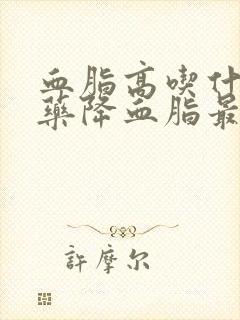 血脂高喫什
藥降血脂最
許摩尔